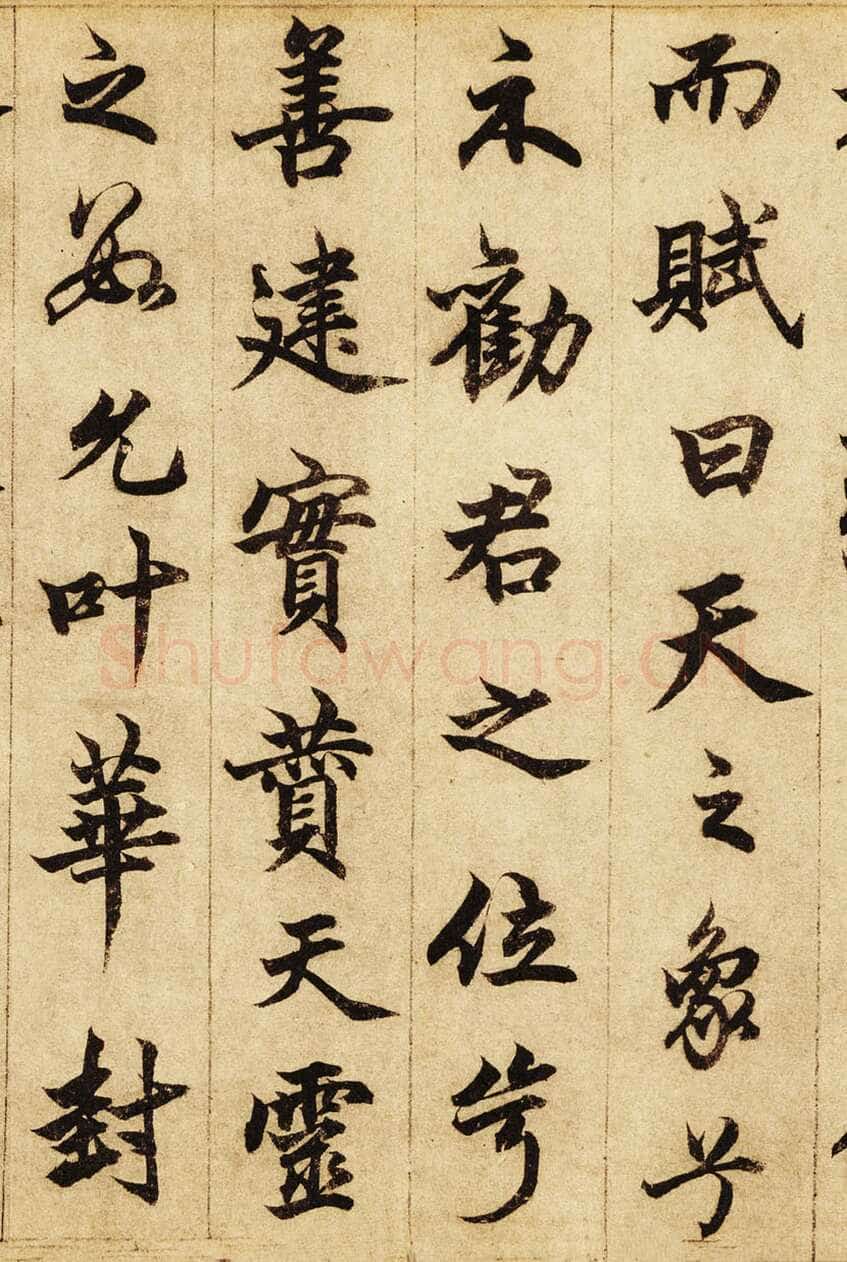 而賦曰天之象兮
示勸君之位兮
善建實蕡天靈
之允叶華封
Shufawang.CN